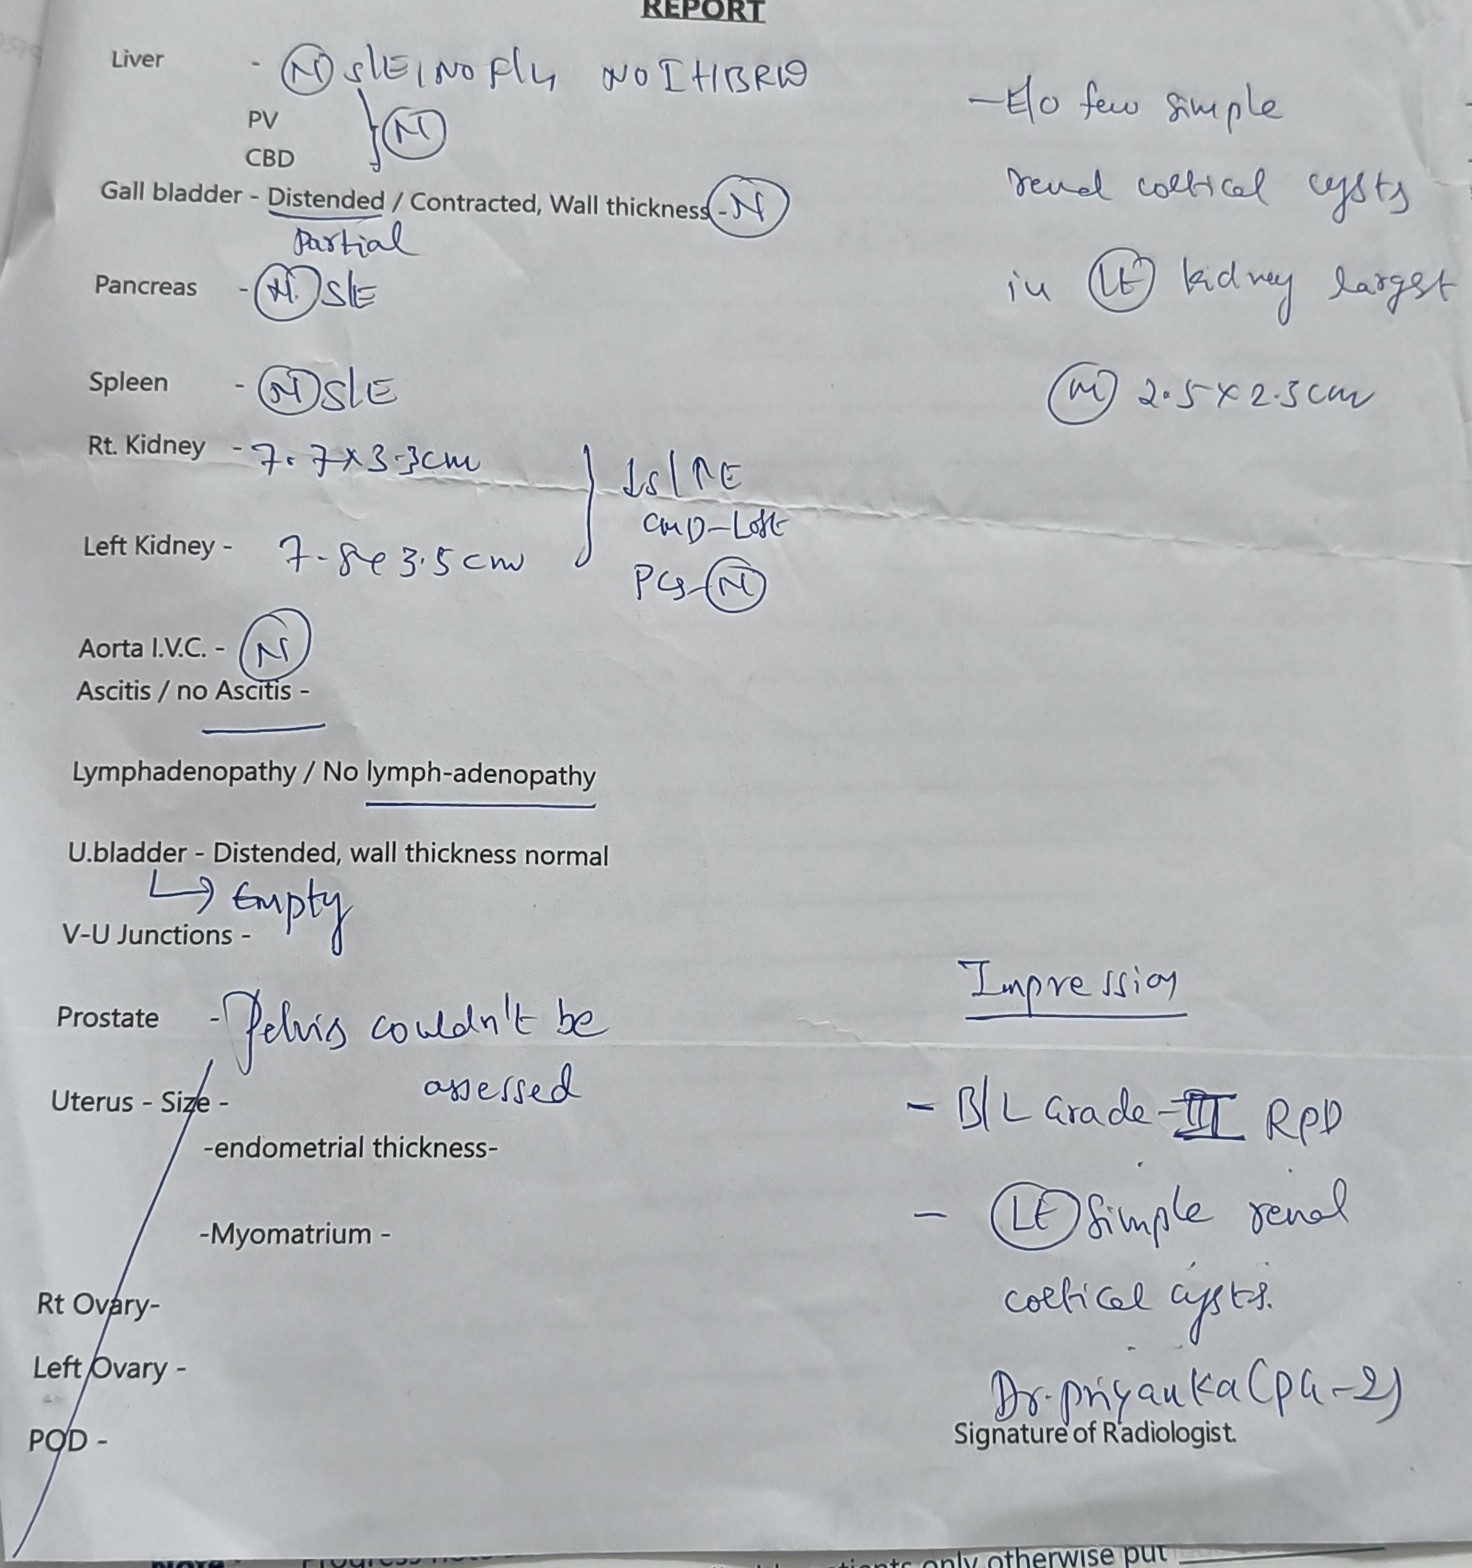 REPORT
Liver - (N) S/E, NO F/L, NO IHBRD
PV
CBD } (N)
Gall bladder - Distended / Contracted, Wall thickness - (N)
Partial
Pancreas - (N) S/E
Spleen - (N) S/E
Rt. Kidney - 7.7x3.3cm
Left Kidney - 7.8x3.5cm
} ↓s/↑E
CMD-Lost
PCS-(N)
Aorta I.V.C. - (N)
Ascitis / no Ascitis -
Lymphadenopathy / No lymph-adenopathy
U.bladder - Distended, wall thickness normal
↳ Empty
V-U Junctions -
Prostate - Pelvis couldn't be
assessed
Uterus - Size -
-endometrial thickness-
-Myomatrium -
Rt Ovary-
Left Ovary -
POD -
- E/o few simple
renal cortical cysts
in (LT) kidney largest
(M) 2.5x2.3cm
Impression
- B/L Grade-III RPD
- (LT) simple renal
cortical cysts.
Dr. Priyanka (PG-2)
Signature of Radiologist.
only otherwise put